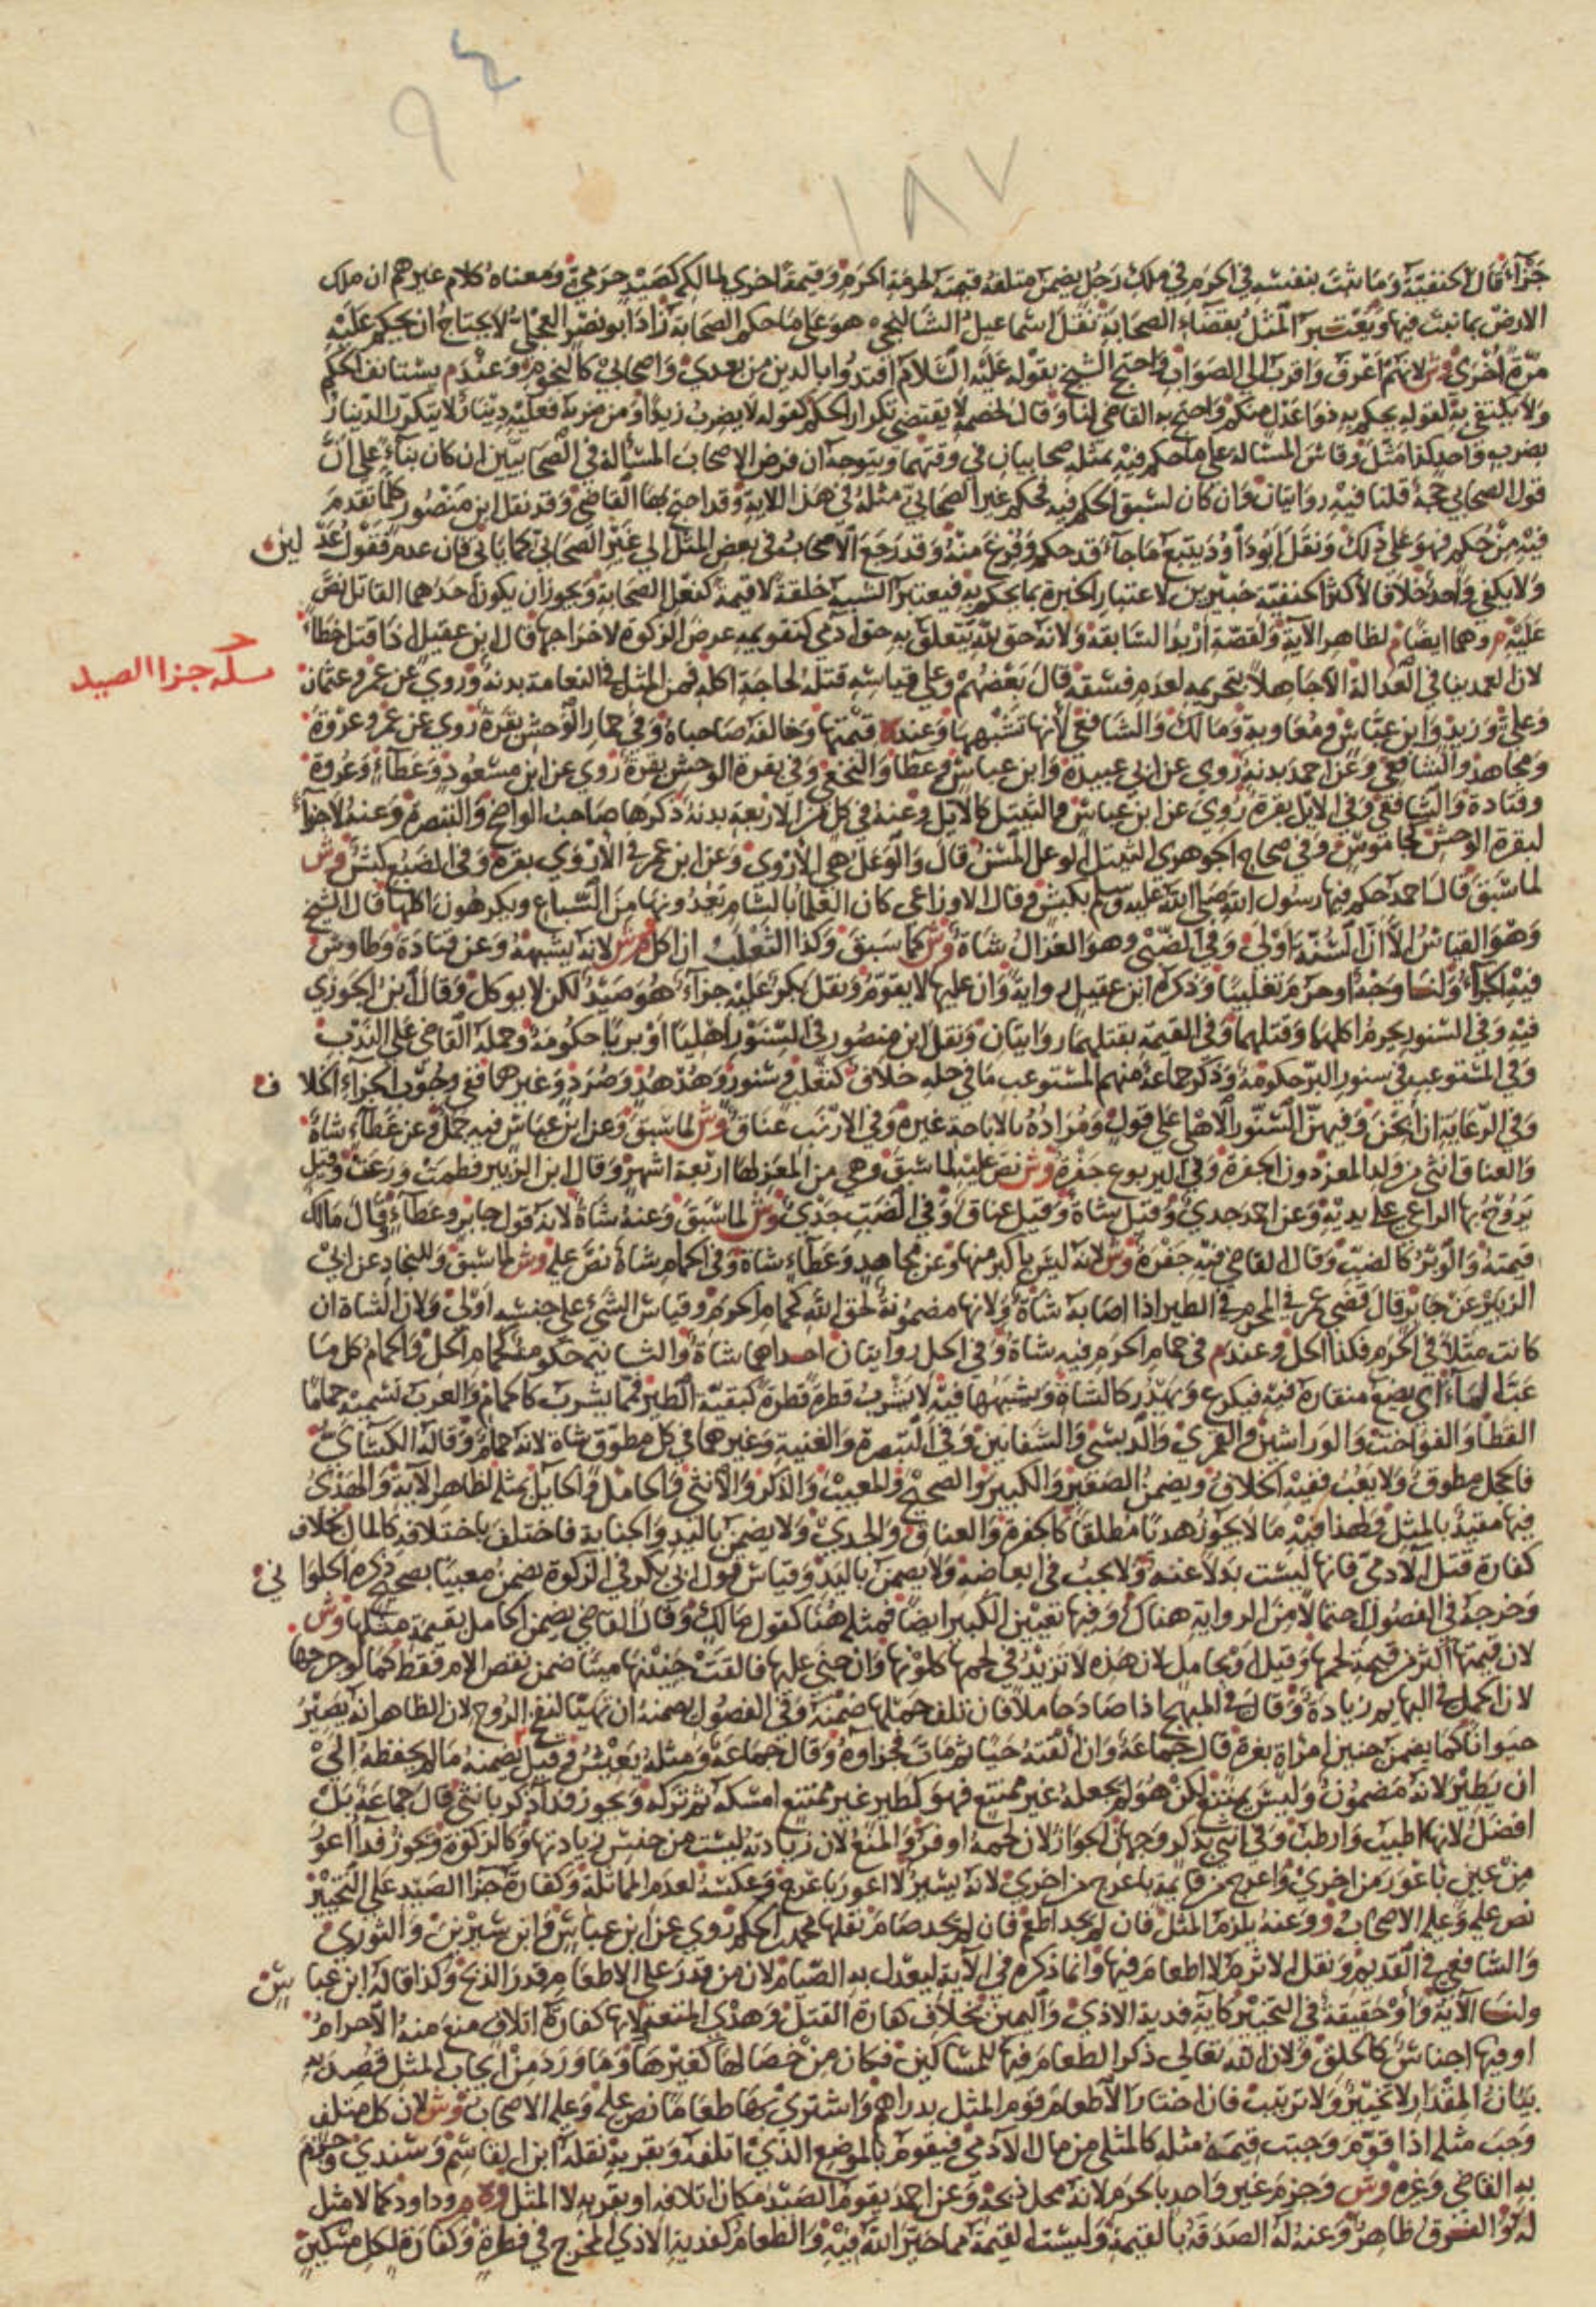 ٩٤
١٨٧
جزاء قال الحنفية وما نبت بنفسه في الحرم في ملك رجل يضمن متلفه قيمته لحرمة الحرم وقيمة اخرى لمالكه كصيد حرمي ومعناه كلام غيرهم ان ملك
الارض بما نبت فيها ويعتبر المثل بقضاء الصحابة نقل اسماعيل الشالنجي هو على ما حكم الصحابة زاد ابو نصر العجلي لا يحتاج ان يحكم عليه
مرة اخرى وش لانهم اعرف واقرب الى الصواب واحتج الشيخ بقوله عليه السلام اقتدوا بالذين من بعدي واصحابي كالنجوم وعند م يستانف الحكم
ولا يكتفي به لقوله يحكم به ذوا عدل منكم واحتج به القاضي لنا وقال لخصمه لا يقتضي تكرار الحكم كقوله لا يضرب زيدا ومن ضربه فعليه دينار لا يتكرر الدينار
بضرب واحد كذا مثل وقاس المسالة على ما حكم فيه بمثله صحابيان في وقتهما ويتوجه ان فرض الاصحاب المسألة في الصحابيين ان كان بناء على ان
قول الصحابي حجة قلنا فيه روايتان وان كان لسبق الحكم فيه فحكم غير الصحابي مثله في هذا الاية وقد احتج بها القاضي وقد نقل ابن منصور كلما تقدم
فيه من حكم فهو على ذلك ونقل ابو داود يتبع ما جاء قد حكم وفرغ منه وقد رجع الاصحاب في بعض المثل الى غير الصحابي كما ياتي فان عدم فقول عدلين
ولا يكفي واحد خلافا لاكثر الحنفية خبيرين لاعتبار الخبرة بما يحكم به فيعتبر الشبه خلقة لا قيمة كفعل الصحابة ويجوز ان يكون احدهما القاتل نص
عليه م وهما ايضا م لظاهر الاية ولقصة اربد السابقة ولانه حق لله يتعلق به حق ادمي كتقويمه عرض الزكوة لاخراجها قال ابن عقيل اذا قتل خطأ
مسألة جزا الصيد
لان العمد ينافي العدالة الا جاهلا بتحريمه لعدم فسقه قال بعضهم وعلى قياسه قتله لحاجة اكله فمن المثل في النعامة بدنة وروي عن عمر وعثمان
وعلي وزيد وابن عباس ومعاوية ومالك والشافعي لانها تشبهها وعند ه قيمتها وخالفه صاحباه وفي حمار الوحش بقرة روي عن عمر وعروة
ومجاهد والشافعي وعن احمد بدنة روي عن ابي عبيدة وابن عباس وعطا والنخعي وفي بقرة الوحش بقرة روي عن ابن مسعود وعطاء وعروة
وقتادة والشافعي وفي الايل بقرة روي عن ابن عباس والثيتل كالايل وعنه في كل من الاربعة بدنة ذكرها صاحب الواضح والتبصرة وعنه لا جزاء
لبقرة الوحش كجاموس وفي صحاح الجوهري الثيتل الوعل المسن قال والوعل هي الاروي وعن ابن عمر في الاروي بقرة وفي الضبع كبش وش
لما سبق قال احمد حكم فيها رسول الله صلى الله عليه وسلم بكبش وقال الاوزاعي كان العلما بالشام يعدونها من السباع ويكرهون اكلها قال الشيخ
وهو القياس الا ان السنة اولى وفي الظبي وهو الغزال شاة وش كما سبق وكذا الثعلب ان اكل وش لانه يشبهه وعن قتادة وطاوس
فيه الجزاء ولنا وجه او حرم تغليبا وذكره ابن عقيل رواية وان عليها لا يقوم ونقل بكر عليه جزاء هو صيد لكن لا يوكل وقال ابن الجوزي
فيه وفي السنور يحرم اكلهما وقتلهما وفي القيمة بقتلهما روايتان ونقل ابن منصور في السنور اهليا او بريا حكومة وحمله القاضي على الندب
وفي المستوعب في سنور البر حكومة وذكر جماعة منهم المستوعب ما في حله خلاف كثعلب وسنور وهدهد وصرد وغيرهما ففي وجوب الجزاء الخلاف
وفي الرعاية ان ابحن وفيهن السنور الاهلي على قول ومراده بالاباحة غيره وفي الارنب عناق وش لما سبق وعن ابن عباس فيه حمل وعن عطاء شاة
والعناق انثى من ولد المعز دون الجفرة وفي اليربوع جفرة وش نص عليه لما سبق وهي من المعز لها اربعة اشهر وقال ابن الزبير فطمت ورعت وقيل
يروح بها الراعي على يديه وعن احمد جدي وقيل شاة وقيل عناق وفي الضب جدي وش لما سبق وعنه شاة لانه قول جابر وعطاء وقال مالك
قيمته والوبر كالضب وقال القاضي فيه جفرة وش لانه ليس باكبر منها وعن مجاهد وعطاء شاة وفي الحمام شاة نص عليه وش لما سبق وللنجاد عن ابي
الزبير عن جابر قال قضى عمر في المحرم في الطير اذا اصابه شاة ولانها مضمونة لحق الله كحمام الحرم وقياس الشيء على جنسه اولى ولان الشاة ان
كانت مثلا في الحرم فكذا الحل وعند م في حمام الحرم فيه شاة وفي الحل روايتان احداهما شاة والثانية حكومة كحمام الحل والحمام كل ما
عب الماء اي يضع منقاره فيه فيكرع ويهدر كالشاة ويشبهها فيه لا يشرب قطرة قطرة كبقية الطير فما يشرب كالحمام والعرب تسميه حماما
القطا والفواخت والوراشين والقمري والدبسي والشفانين وفي التبصرة والغنية وغيرهما في كل مطوق شاة لانه حمام وقاله الكسائي
فالحجل مطوق ولا يعب ففيه الخلاف ويضمن الصغير والكبير والصحيح والمعيب والذكر والانثى والحامل والحايل بمثله لظاهر الاية والهدي
فيها مقيد بالمثل ولهذا فيه ما لا يجوز هديا مطلقا كالجفرة والعناق والجدي ولا يضمن باليد والجناية فاختلف باختلافه كالمال بخلاف
كفارة قتل الادمي فانها ليست بدلا عنه ولا يجب في ابعاضه ولا يضمن باليد وقياس قول ابي بكر في الزكوة يضمن معيبا بصحيح ذكره الحلواني
وخرجه في الفصول احتمالا من الرواية هناك وفيها تعيين الكبير ايضا فمثله هنا كقول مالك وقال القاضي يضمن الحامل بقيمة مثلها وش
لان قيمتها اكثر من قيمة لحمها وقيل او بحامل لان هذه لا تزيد في لحمها كلونها وان جنى عليها فالقت جنينها ميتا ضمن نقص الام فقط كما لو جرحها
لان الحمل في البهايم زيادة وقال في المبهج اذا صاد حاملا فان تلف حملها ضمنه وفي الفصول يضمنه ان تهيا لنفخ الروح لان الظاهر انه يصير
حيوانا كما يضمن جنين امراة بغرة قال جماعة وان القته حيا ثم مات فجزاوه وقال جماعة ومثله يعيش وقيل يضمنه ما لم يحفظه الى
ان يطير لانه مضمون وليس بممتنع لكن هو لم يجعله غير ممتنع فهو كطير غير ممتنع امسكه ثم تركه ويجوز فدا ذكر بانثى قال جماعة بل
افضل لانها اطيب وارطب وفي انثى بذكر وجهان الجواز لان لحمه اوفر والمنع لان زيادته ليست من جنس زيادتها وكالزكوة ويجوز فدا اعور
من عين باعور من اخرى واعرج من قايمة باعرج من اخرى لانه يسير لا اعور باعرج وعكسه لعدم المماثلة وكفارة جزا الصيد على التخيير
نص عليه وعليه الاصحاب و وعنه يلزم المثل فان لم يجد اطعم فان لم يجد صام نقلها محمد بن الحكم روي عن ابن عباس وابن سيرين والثوري
والشافعي في القديم ونقل الاثرم لا اطعام فيها وانما ذكره في الاية ليعدل به الصيام لان من قدر على الاطعام قدر الذبح وكذا قاله ابن عباس
ولنا الاية واو حقيقة في التخيير كاية فدية الاذى واليمين بخلاف كفارة القتل وهدي المتعة لانها كفارة اتلاف منع منه الاحرام
او فيها اجناس كالحلق ولان الله تعالى ذكر الطعام فيها للمساكين فكان من خصالها كغيرها وما ورد من ايجاب المثل قصد به
بيان المقدار لا تخيير ولا ترتيب فان اختار الاطعام قوم المثل بدراهم واشترى بها طعاما نص عليه وعليه الاصحاب وش لان كل متلف
وجب مثله اذا قوم وجبت قيمة مثله كالمثلي من مال الادمي فيقوم بالموضع الذي اتلفه وبقربه نقله ابن القاسم وسندي وجزم
به القاضي وغيره وش وجزم غير واحد بالحرم لانه محل ذبحه وعن احمد يقوم الصيد مكان اتلافه او بقربه لا المثل وه م وداود كما لا مثل
له والفرق ظاهر وعنه له الصدقة بالقيمة وليست القيمة مما خير الله فيه والطعام كفدية الاذى المخرج في فطرة وكفارة لكل مسكين